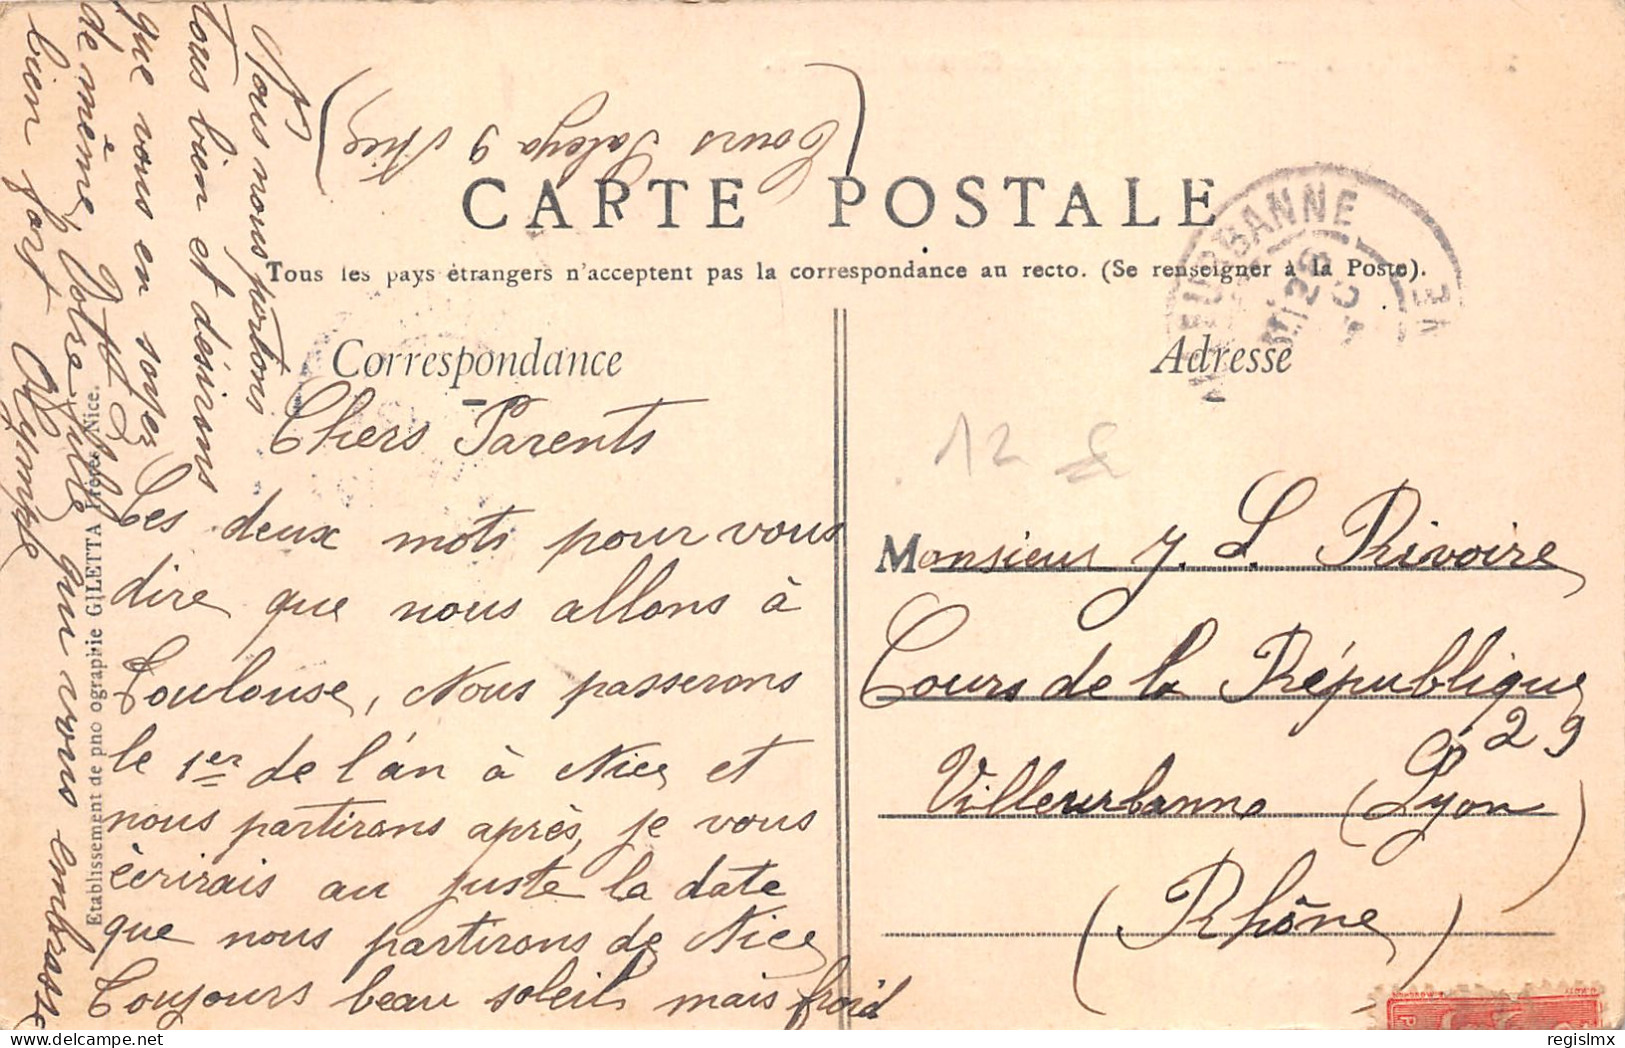 (Cours Saleya 9 Nice)
CARTE POSTALE
Tous les pays étrangers n'acceptent pas la correspondance au recto. (Se renseigner à la Poste).
Correspondance
Adresse
12
Chers Parents
Ces deux mots pour vous
dire que nous allons à
Toulouse, Nous passerons
le 1er de l'an à Nice et
nous partirons après, je vous
écrirais au juste la date
que nous partirons de Nice
Toujours beau soleil mais froid
Nous nous portons
tous bien et désirons
que vous en soyez
de même, Votre fille qui vous embrasse
bien fort Olympe
Monsieur J. L. Rivoire
Cours de la République
29
Villeurbanne (Lyon)
(Rhône)
Etablissement de photographie GILETTA Frères, Nice.
URBANNE
regislmx
delcampe.net